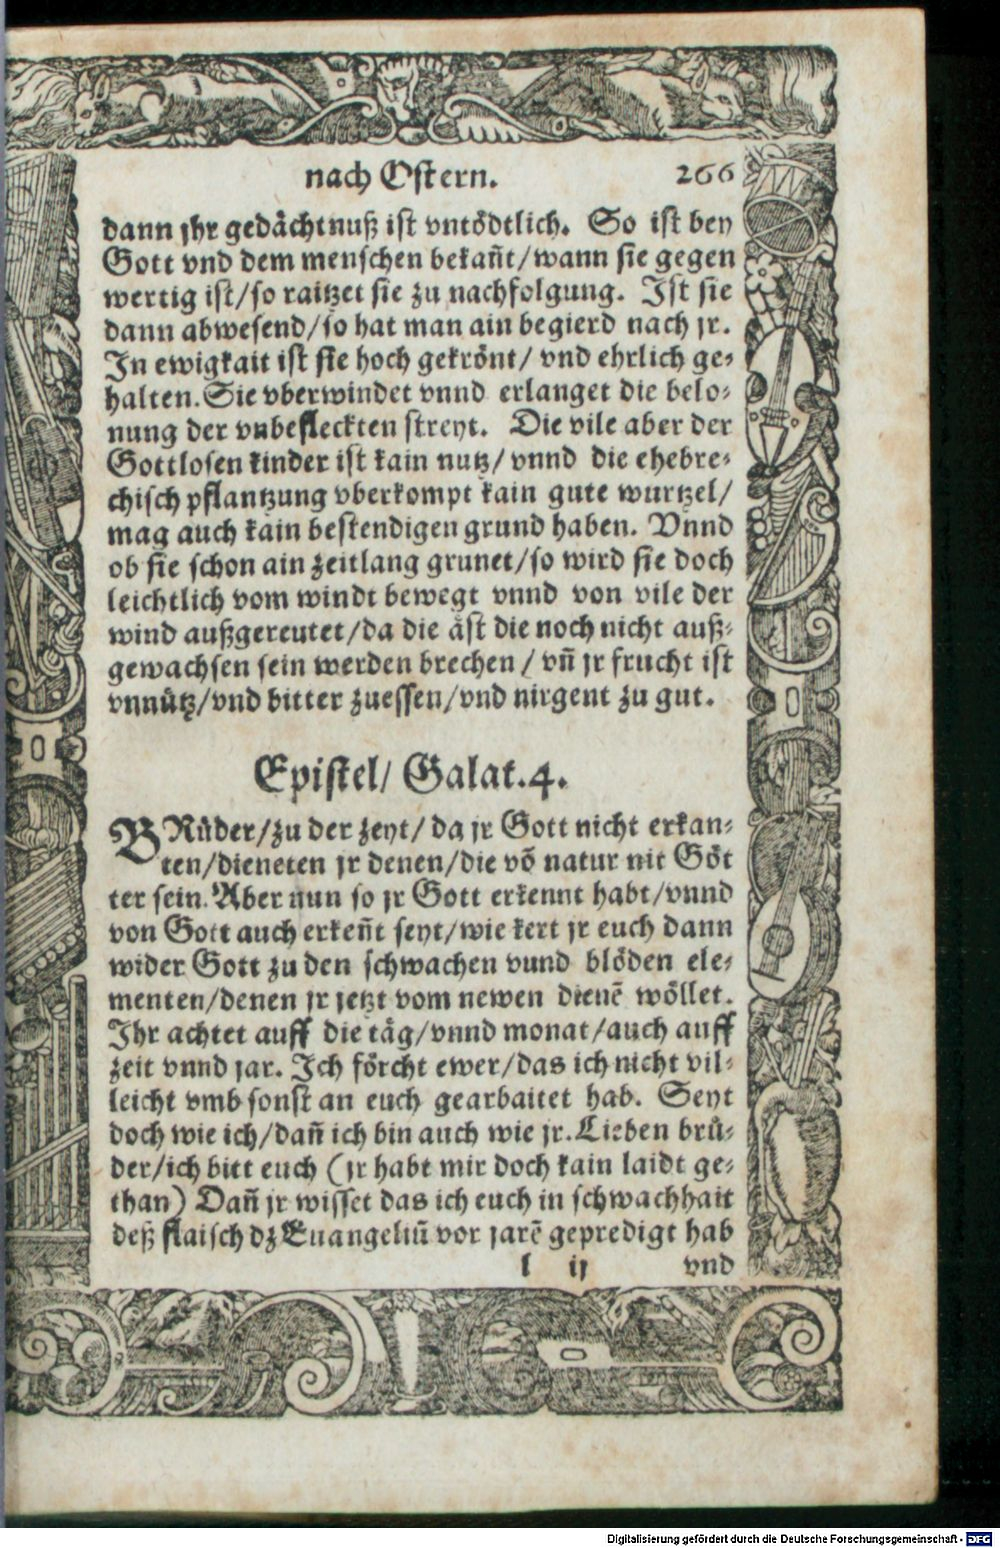 nach Ostern. 266
dann jhr gedächtnuß ist vntödtlich. So ist bey
Gott vnd dem menschen bekañt/wann sie gegen
wertig ist/so raitzet sie zu nachfolgung. Ist sie
dann abwesend/so hat man ain begierd nach jr.
In ewigkait ist sie hoch gekrönt/ vnd ehrlich ge⸗
halten. Sie vberwindet vnnd erlanget die belo⸗
nung der vnbefleckten streyt. Die vile aber der
Gottlosen kinder ist kain nutz/ vnnd die ehebre⸗
chisch pflantzung vberkompt kain gute wurtzel/
mag auch kain bestendigen grund haben. Vnnd
ob sie schon ain zeitlang grunet/so wird sie doch
leichtlich vom windt bewegt vnnd von vile der
wind außgereutet/da die äst die noch nicht auß⸗
gewachsen sein werden brechen/ vñ jr frucht ist
vnnütz/vnd bitter zuessen/vnd nirgent zu gut.
Epistel/ Galat.4.
BRüder/zu der zeyt/ da jr Gott nicht erkan⸗
ten/dieneten jr denen/die võ natur nit Göt
ter sein. Aber nun so jr Gott erkennt habt/vnnd
von Gott auch erkeñt seyt/wie kert jr euch dann
wider Gott zu den schwachen vund blöden ele⸗
menten/denen jr jetzt vom newen dienẽ wöllet.
Ihr achtet auff die täg/vnnd monat/auch auff
zeit vnnd jar. Ich förcht ewer/das ich nicht vil⸗
leicht vmb sonst an euch gearbaitet hab. Seyt
doch wie ich/dañ ich bin auch wie jr. Lieben brü⸗
der/ich bitt euch (jr habt mir doch kain laidt ge⸗
than) Dañ jr wisset das ich euch in schwachhait
deß flaisch dz Euangeliũ vor jarẽ gepredigt hab
l ij vnd
Digitalisierung gefördert durch die Deutsche Forschungsgemeinschaft - DFG